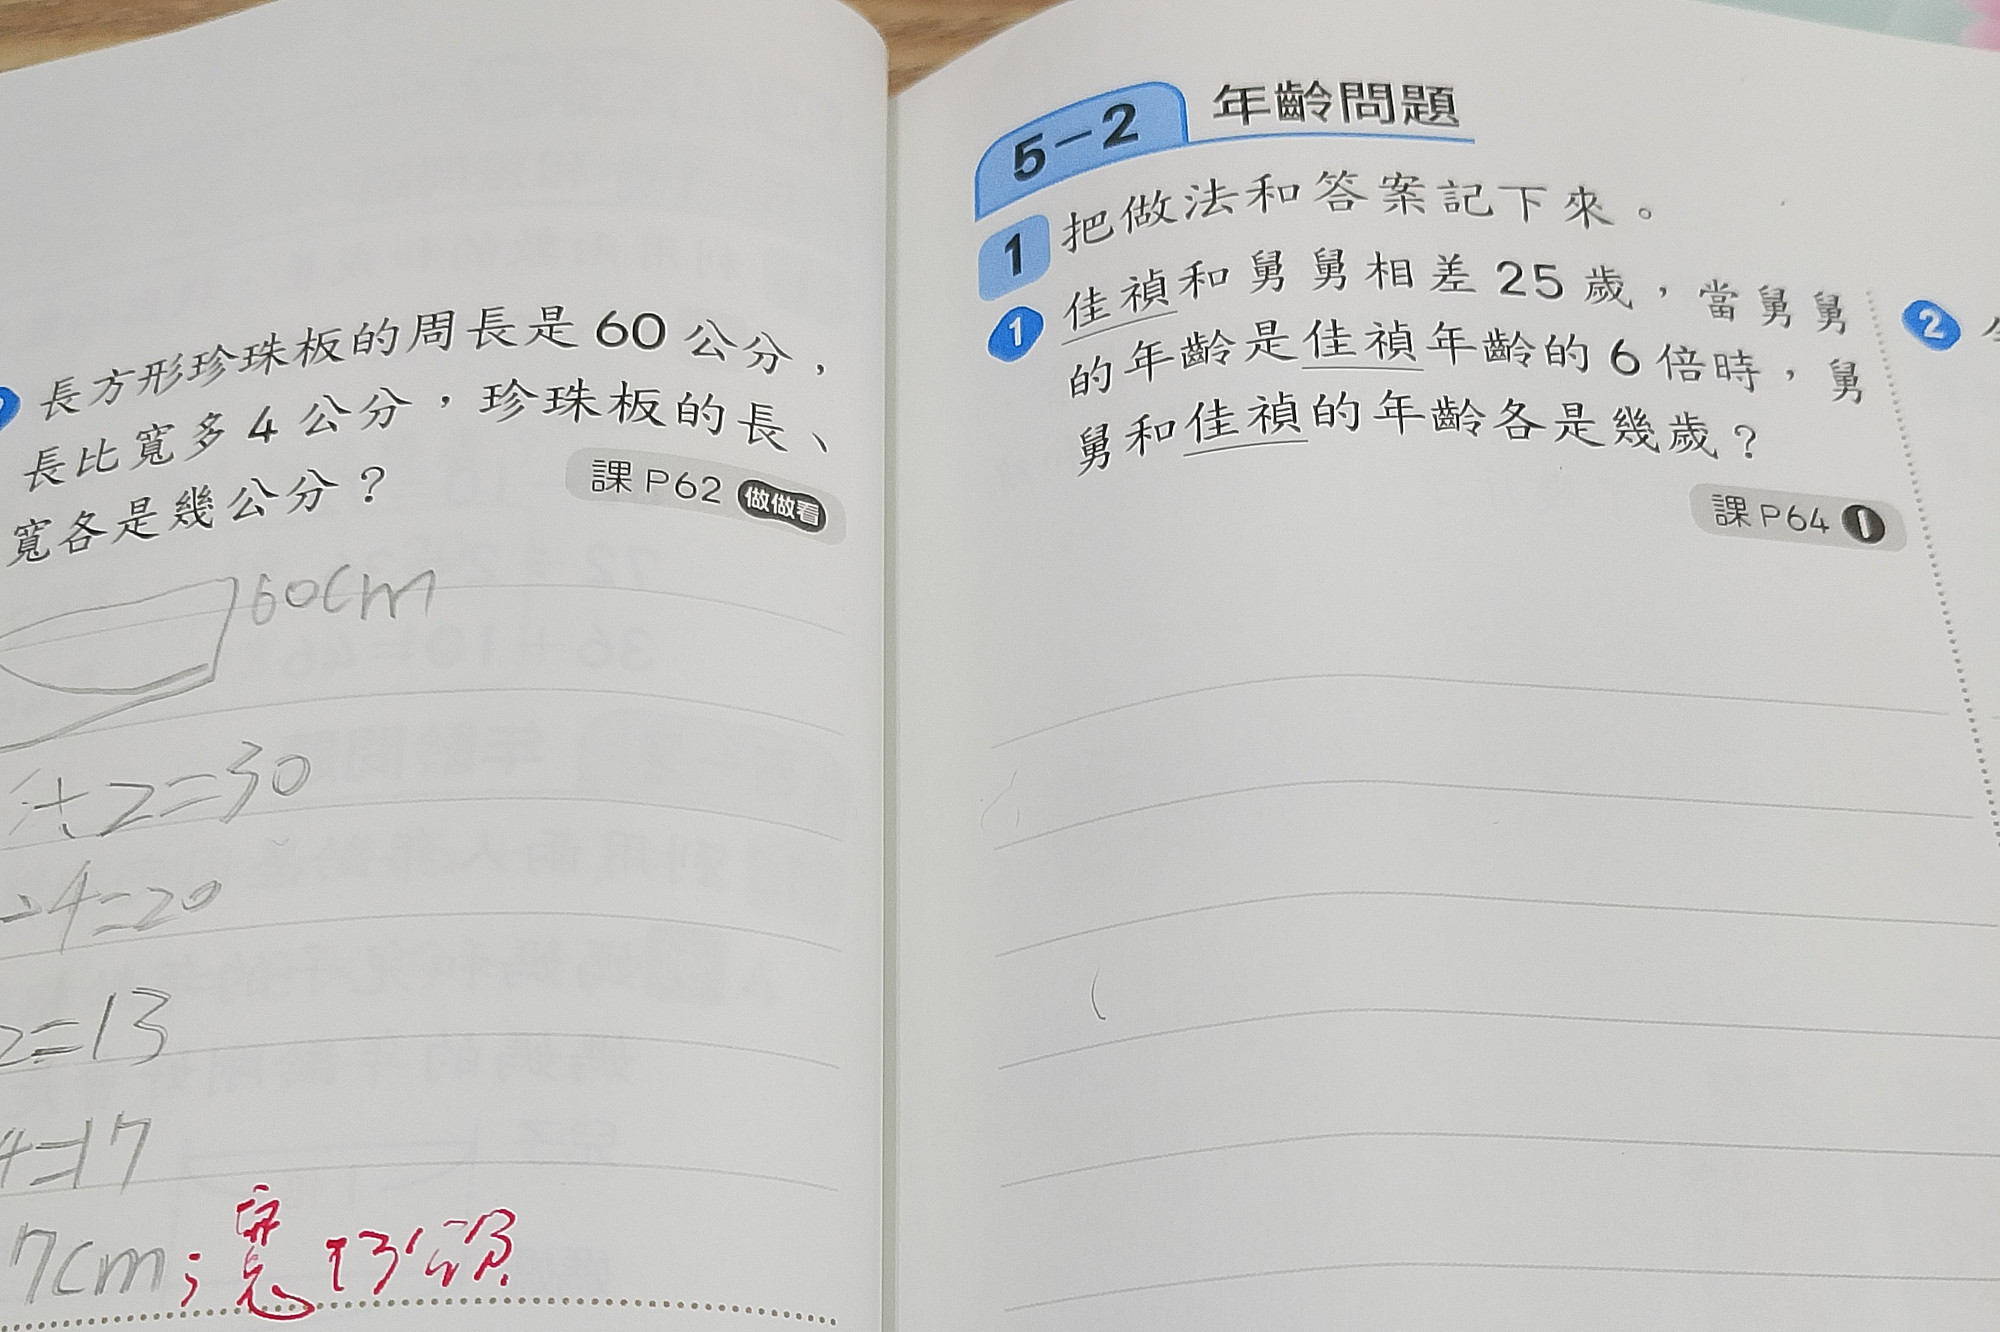 長方形珍珠板的周長是60公分，
長比寬多4公分，珍珠板的長、
寬各是幾公分？
課P62 做做看
60cm
÷2=30
-4=26
2=13
4=17
7cm；寬13公分
5-2 年齡問題
1 把做法和答案記下來。
1 佳禎和舅舅相差25歲，當舅舅
的年齡是佳禎年齡的6倍時，舅
舅和佳禎的年齡各是幾歲？
課P64 1
2